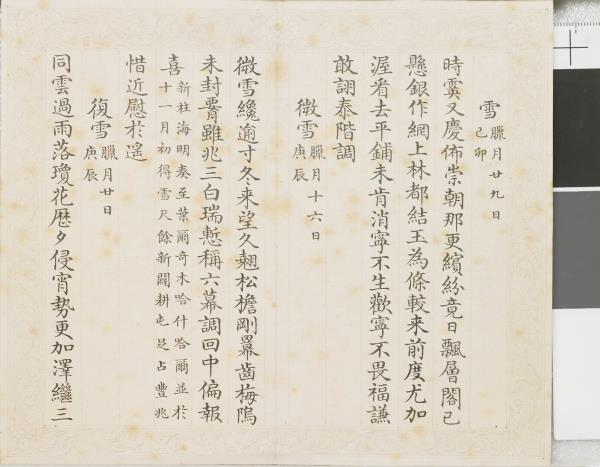 雪 臘月廿九日
己卯
時霙又慶佈崇朝那更繽紛竟日飄層閣已
懸銀作網上林都結玉為條較来前度尤加
渥看去平鋪未肯消寧不生歡寧不畏福謙
敢詡泰階調
微雪 臘月十六日
庚辰
微雪纔逾寸冬来望久翹松檐剛羃齒梅隖
未封膋雖兆三白瑞慙稱六幕調回中偏報
喜 新柱海明奏至葉爾奇木哈什哈爾並於
十一月初得雪尺餘新闢耕屯足占豐兆
惜近慰於遥
復雪 臘月廿日
庚辰
同雲過雨落瓊花歷夕侵宵勢更加澤繼三